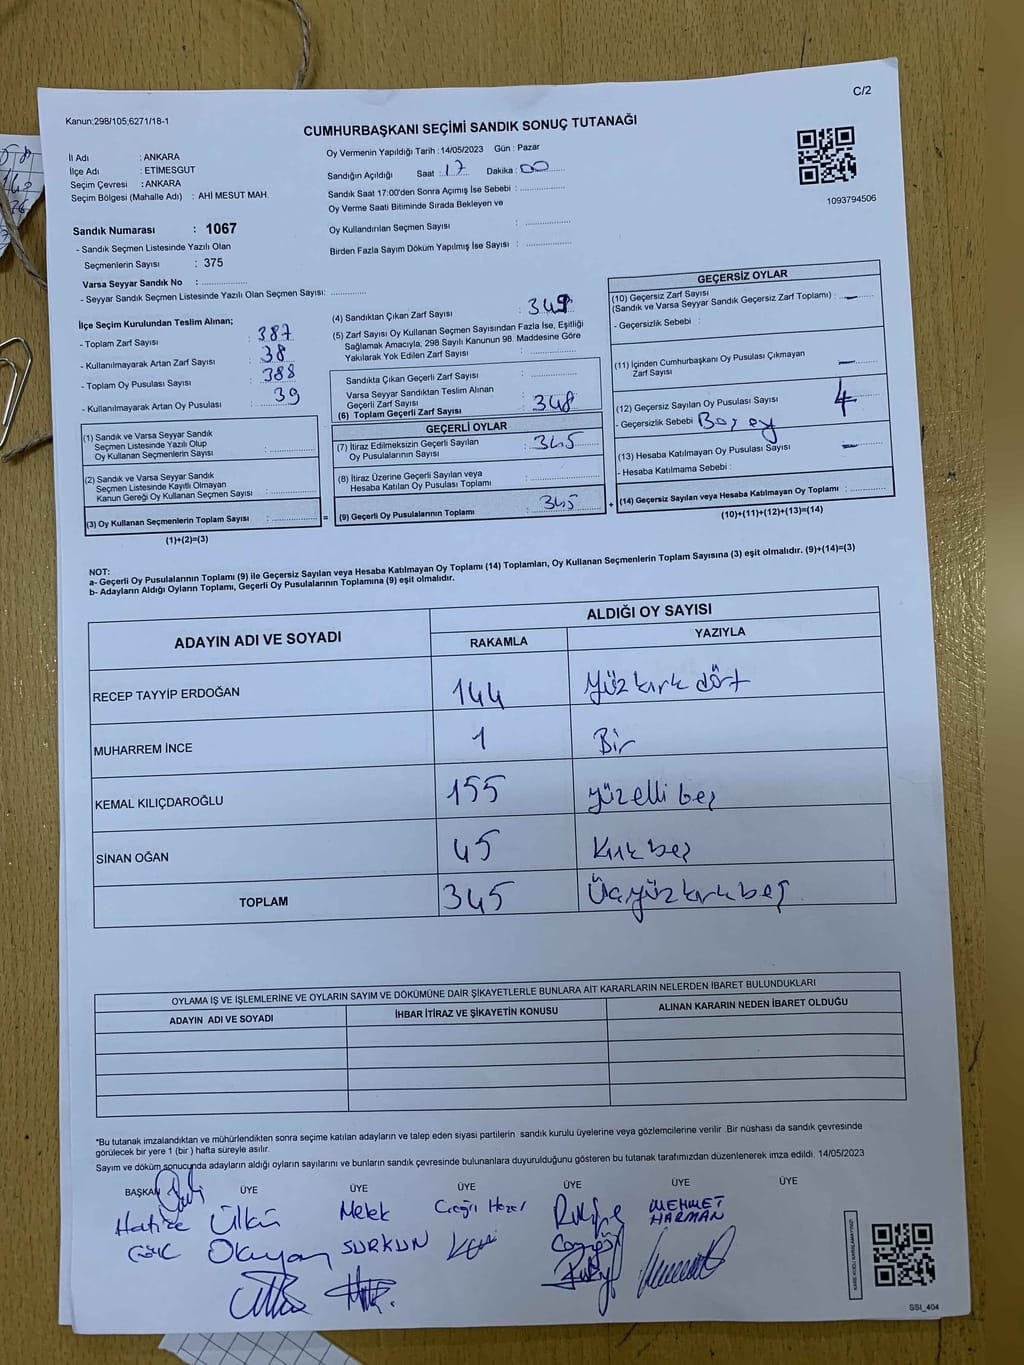 C/2
Kanun:298/105;6271/18-1
CUMHURBAŞKANI SEÇİMİ SANDIK SONUÇ TUTANAĞI
İl Adı : ANKARA
İlçe Adı : ETİMESGUT
Seçim Çevresi : ANKARA
Seçim Bölgesi (Mahalle Adı) : AHİ MESUT MAH.
Oy Vermenin Yapıldığı Tarih : 14/05/2023 Gün : Pazar
Sandığın Açıldığı Saat : 17 Dakika : 00
Sandık Saat 17:00'den Sonra Açımış İse Sebebi :
Oy Verme Saati Bitiminde Sırada Bekleyen ve
Oy Kullandırılan Seçmen Sayısı :
Birden Fazla Sayım Döküm Yapılmış İse Sayısı :
1093794506
Sandık Numarası : 1067
- Sandık Seçmen Listesinde Yazılı Olan
Seçmenlerin Sayısı : 375
Varsa Seyyar Sandık No :
- Seyyar Sandık Seçmen Listesinde Yazılı Olan Seçmen Sayısı:
İlçe Seçim Kurulundan Teslim Alınan;
- Toplam Zarf Sayısı : 387
- Kullanılmayarak Artan Zarf Sayısı : 38
- Toplam Oy Pusulası Sayısı : 388
- Kullanılmayarak Artan Oy Pusulası : 39
(1) Sandık ve Varsa Seyyar Sandık
Seçmen Listesinde Yazılı Olup
Oy Kullanan Seçmenlerin Sayısı :
(2) Sandık ve Varsa Seyyar Sandık
Seçmen Listesinde Kayıtlı Olmayan
Kanun Gereği Oy Kullanan Seçmen Sayısı :
(3) Oy Kullanan Seçmenlerin Toplam Sayısı : =
(1)+(2)=(3)
(4) Sandıktan Çıkan Zarf Sayısı : 349
(5) Zarf Sayısı Oy Kullanan Seçmen Sayısından Fazla İse, Eşitliği
Sağlamak Amacıyla, 298 Sayılı Kanunun 98. Maddesine Göre
Yakılarak Yok Edilen Zarf Sayısı :
Sandıkta Çıkan Geçerli Zarf Sayısı :
Varsa Seyyar Sandıktan Teslim Alınan
Geçerli Zarf Sayısı :
(6) Toplam Geçerli Zarf Sayısı : 348
GEÇERLİ OYLAR
(7) İtiraz Edilmeksizin Geçerli Sayılan
Oy Pusulalarının Sayısı : 345
(8) İtiraz Üzerine Geçerli Sayılan veya
Hesaba Katılan Oy Pusulası Toplamı :
(9) Geçerli Oy Pusulalarının Toplamı : 345 +
GEÇERSİZ OYLAR
(10) Geçersiz Zarf Sayısı
(Sandık ve Varsa Seyyar Sandık Geçersiz Zarf Toplamı) : —
- Geçersizlik Sebebi :
(11) İçinden Cumhurbaşkanı Oy Pusulası Çıkmayan
Zarf Sayısı : —
(12) Geçersiz Sayılan Oy Pusulası Sayısı : 4
- Geçersizlik Sebebi
(13) Hesaba Katılmayan Oy Pusulası Sayısı : —
- Hesaba Katılmama Sebebi :
(14) Geçersiz Sayılan veya Hesaba Katılmayan Oy Toplamı :
(10)+(11)+(12)+(13)=(14)
NOT:
a- Geçerli Oy Pusulalarının Toplamı (9) ile Geçersiz Sayılan veya Hesaba Katılmayan Oy Toplamı (14) Toplamları, Oy Kullanan Seçmenlerin Toplam Sayısına (3) eşit olmalıdır. (9)+(14)=(3)
b- Adayların Aldığı Oyların Toplamı, Geçerli Oy Pusulalarının Toplamına (9) eşit olmalıdır.
ADAYIN ADI VE SOYADI
ALDIĞI OY SAYISI
RAKAMLA YAZIYLA
RECEP TAYYİP ERDOĞAN 144 Yüz kırk dört
MUHARREM İNCE 1 Bir
KEMAL KILIÇDAROĞLU 155 yüzelli beş
SİNAN OĞAN 45 Kırk beş
TOPLAM 345 Üçyüz kırk beş
OYLAMA İŞ VE İŞLEMLERİNE VE OYLARIN SAYIM VE DÖKÜMÜNE DAİR ŞİKAYETLERLE BUNLARA AİT KARARLARIN NELERDEN İBARET BULUNDUKLARI
ADAYIN ADI VE SOYADI İHBAR İTİRAZ VE ŞİKAYETİN KONUSU ALINAN KARARIN NEDEN İBARET OLDUĞU
*Bu tutanak imzalandıktan ve mühürlendikten sonra seçime katılan adayların ve talep eden siyasi partilerin sandık kurulu üyelerine veya gözlemcilerine verilir .Bir nüshası da sandık çevresinde
görülecek bir yere 1 (bir ) hafta süreyle asılır.
Sayım ve döküm sonucunda adayların aldığı oyların sayılarını ve bunların sandık çevresinde bulunanlara duyurulduğunu gösteren bu tutanak tarafımızdan düzenlenerek imza edildi. 14/05/2023
BAŞKAN ÜYE ÜYE ÜYE ÜYE ÜYE ÜYE
Hatice Ülkü Melek MEHMET
Okuyan HARMAN
SSI_404